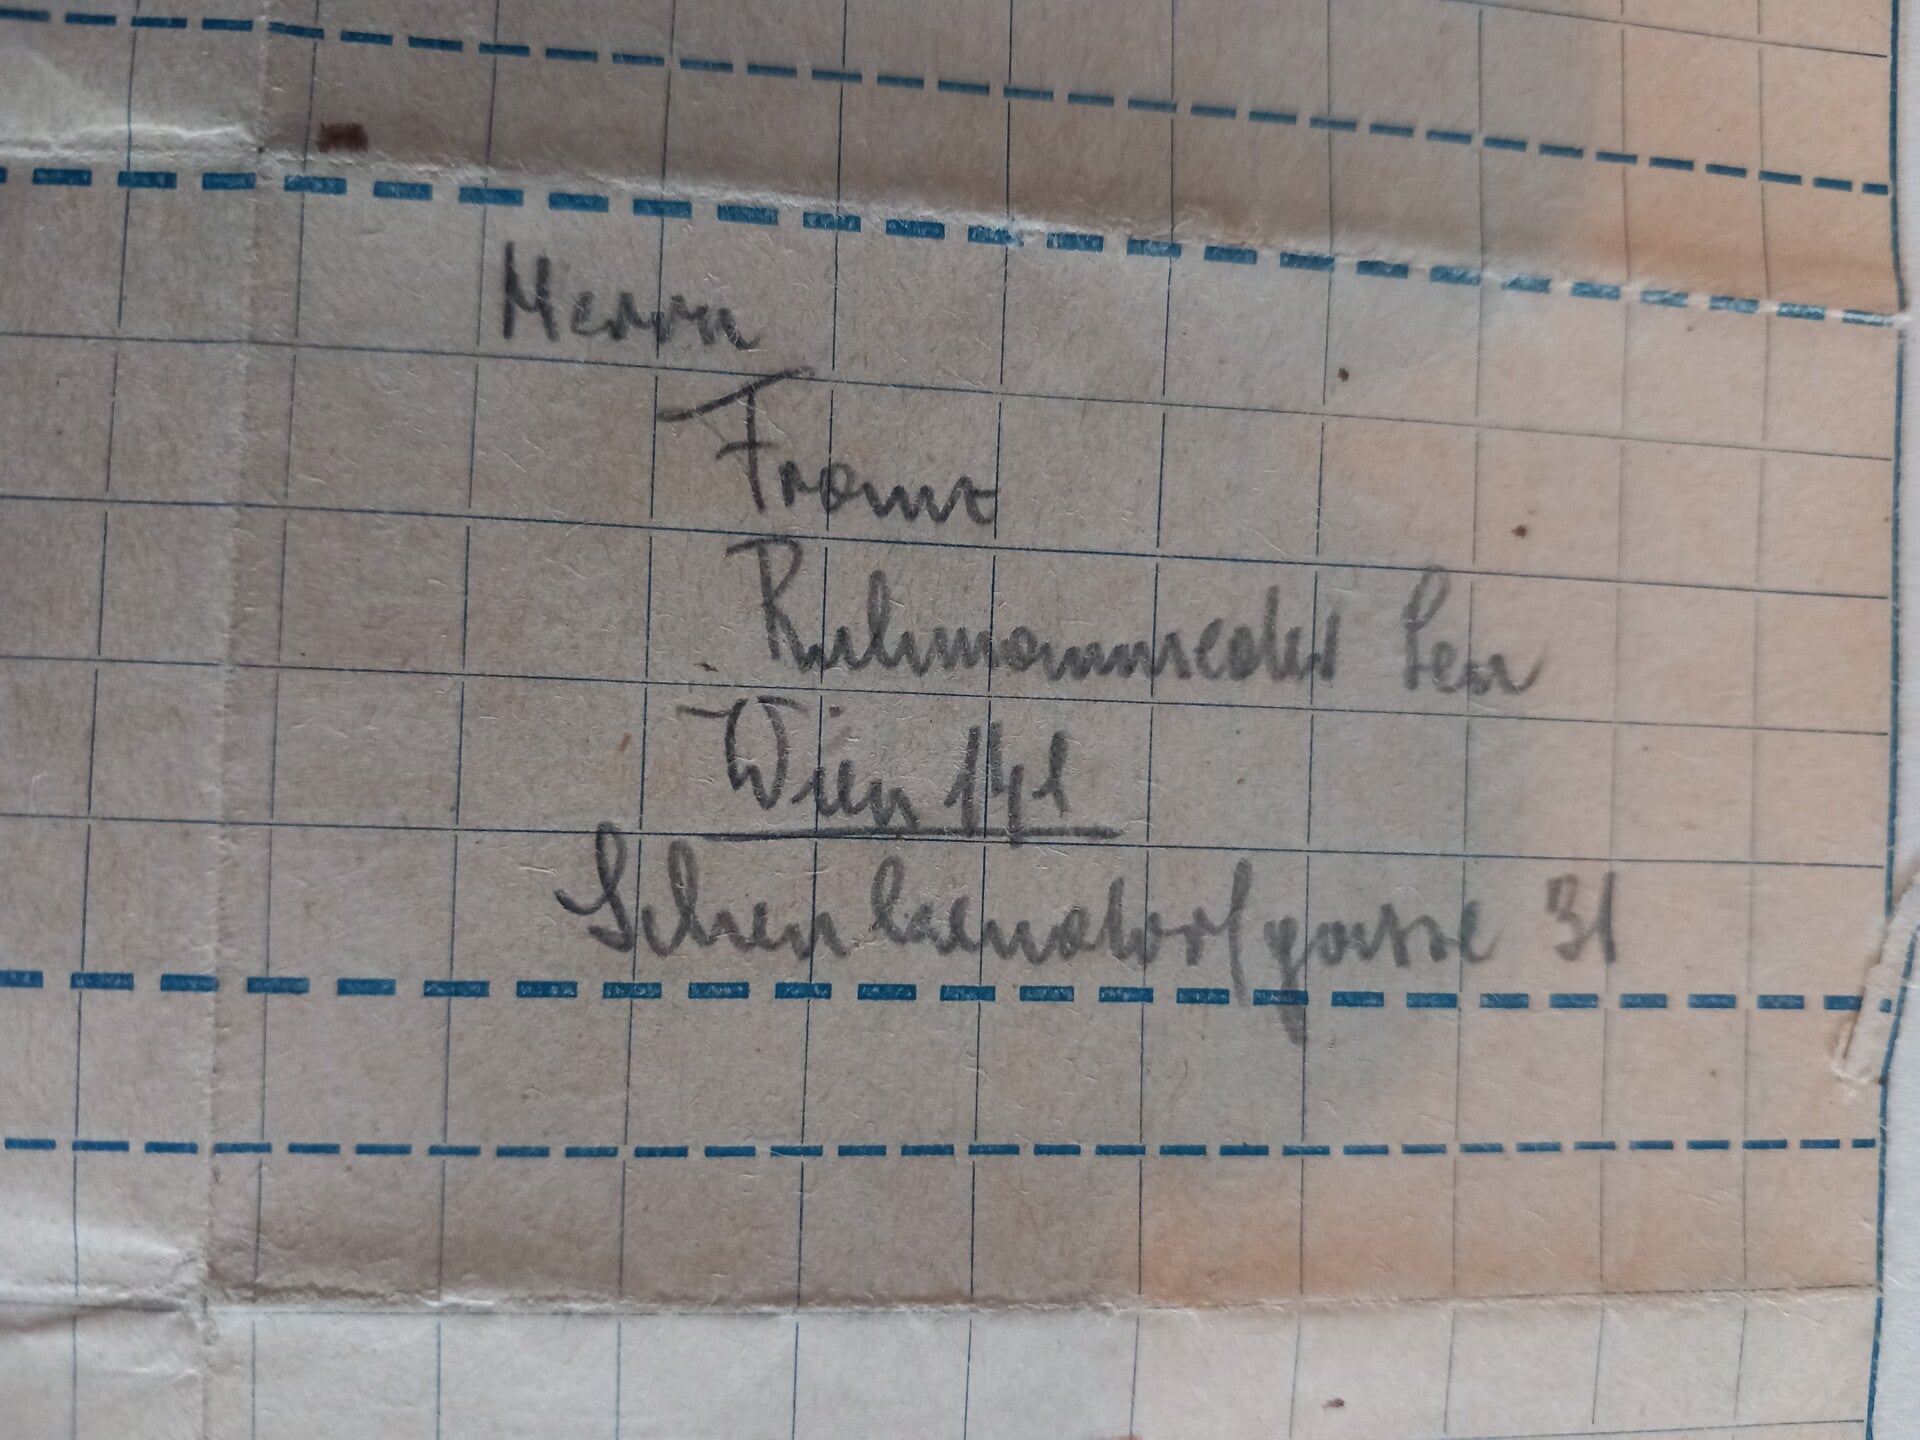 Herrn
Franz
Ruhmannseder Sen
Wien 141
Schenkendorfgasse 31